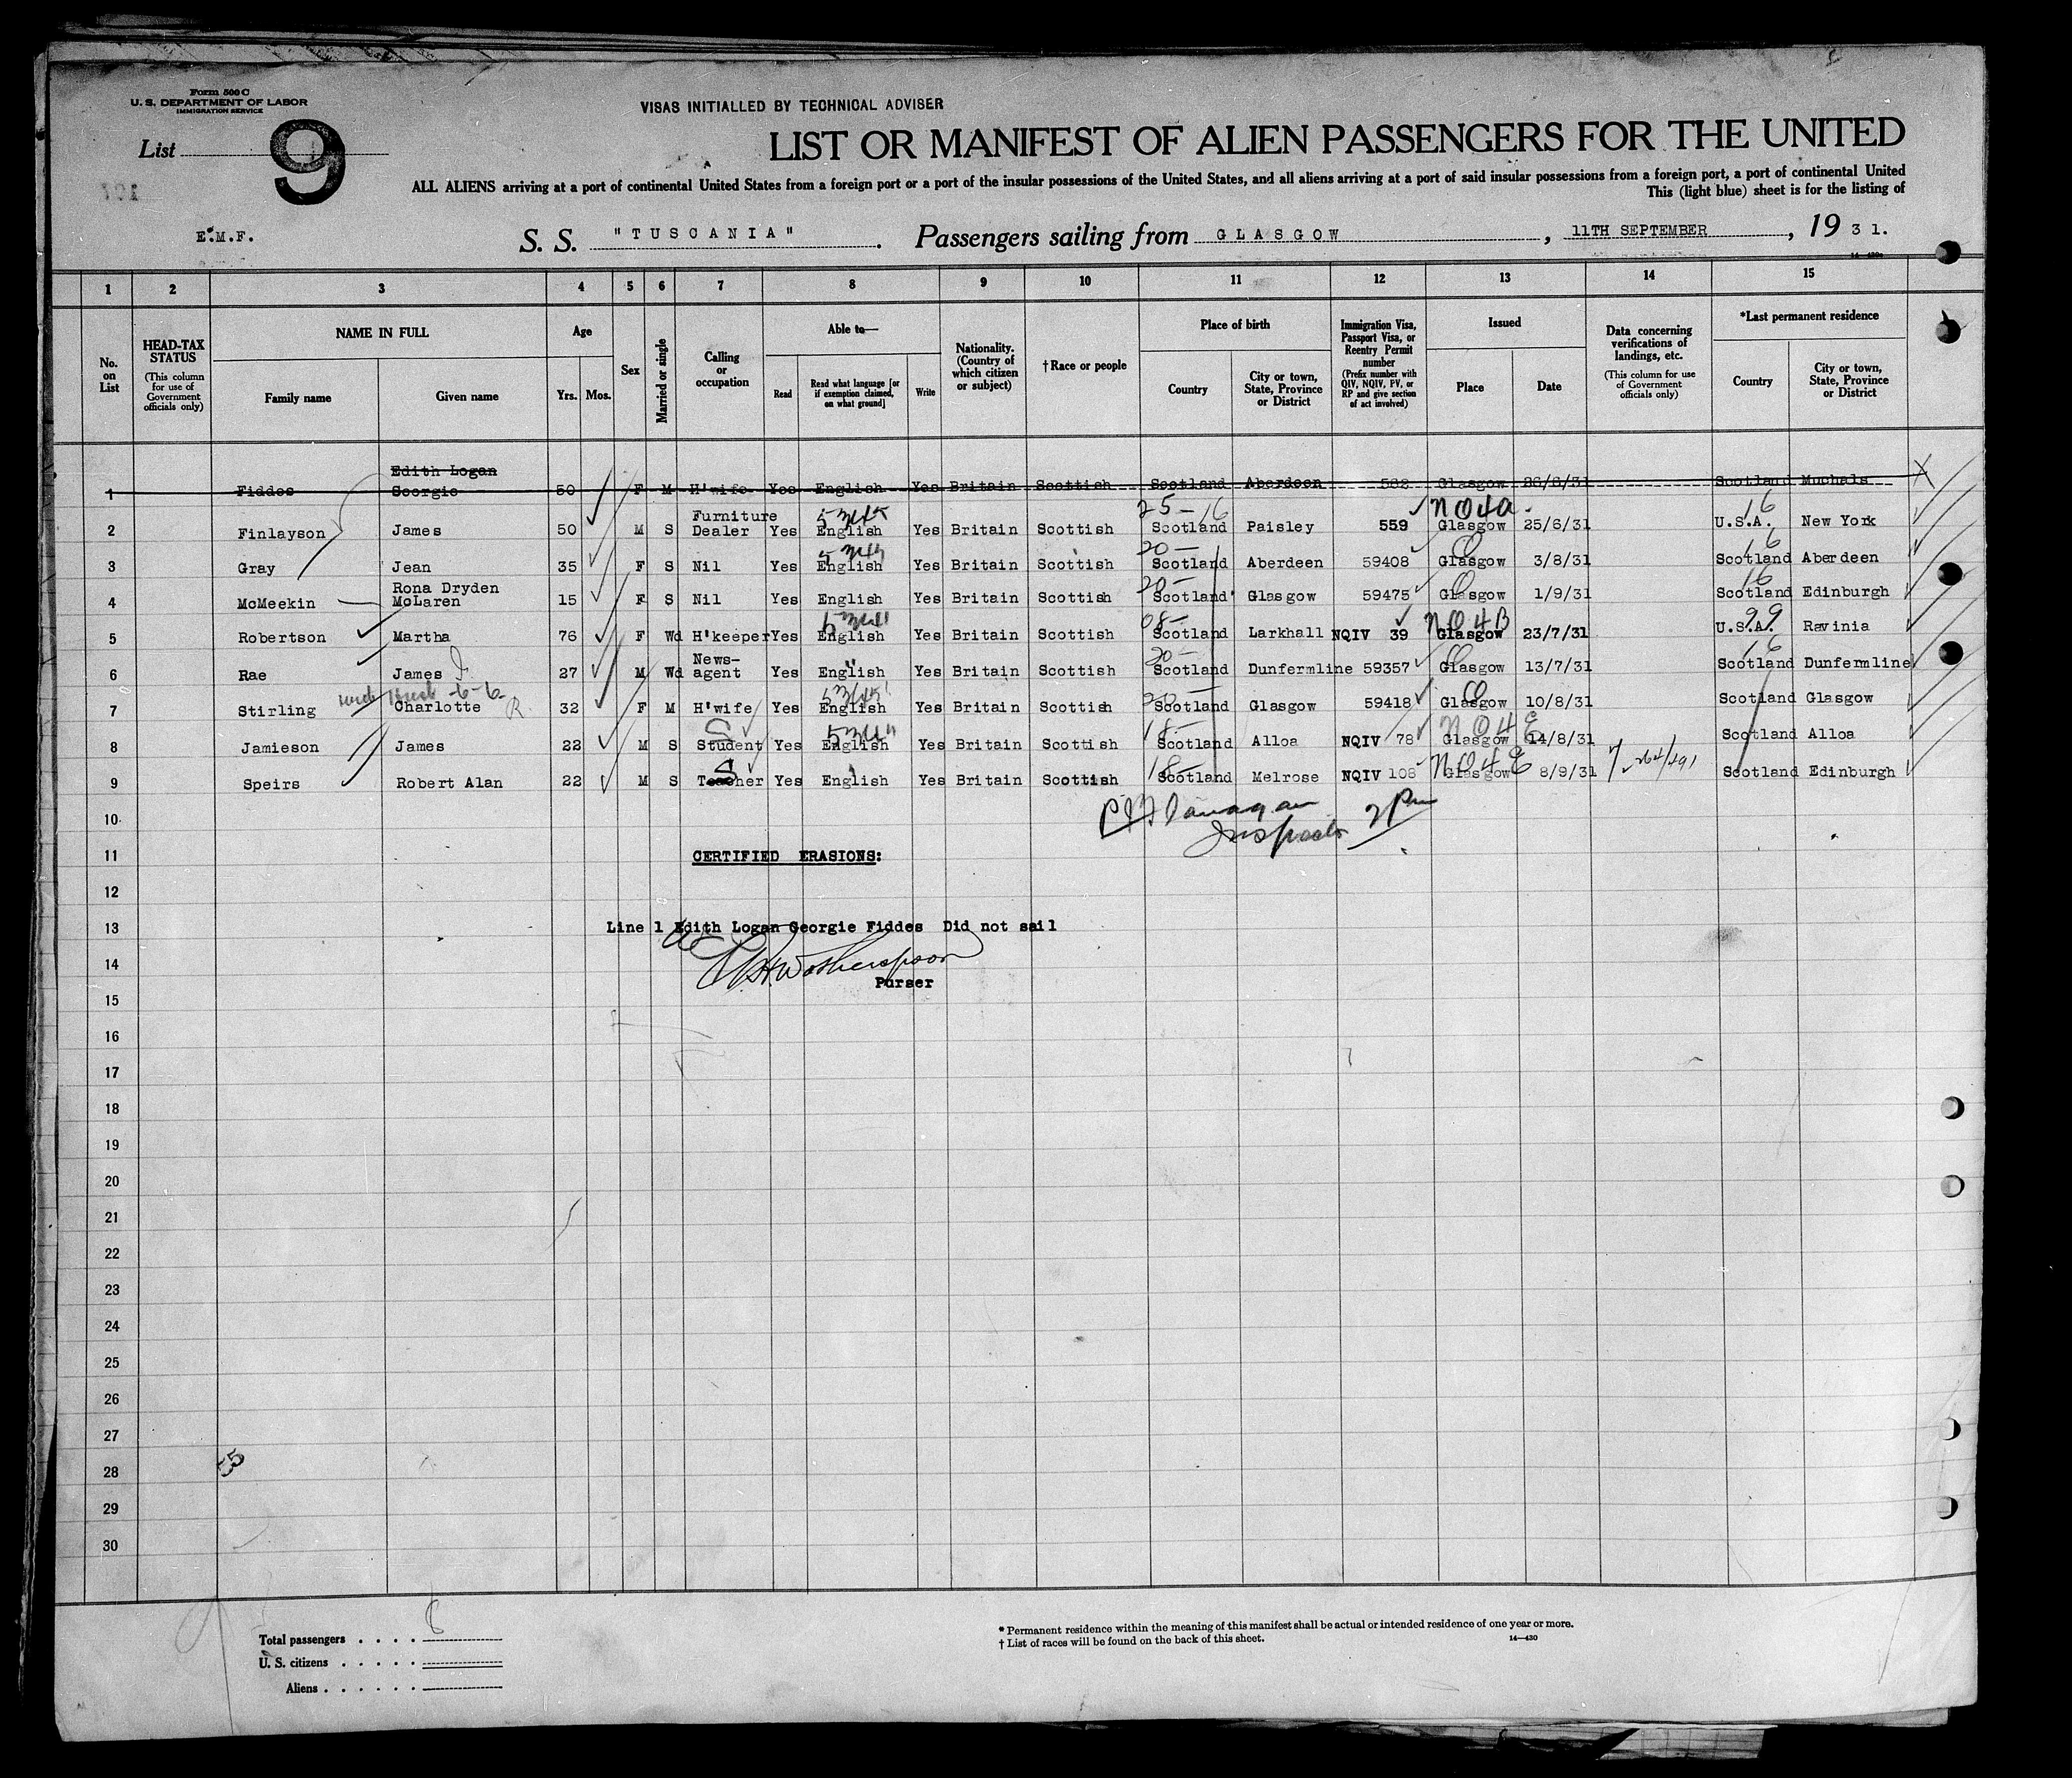 Form 500 C
U. S. DEPARTMENT OF LABOR
IMMIGRATION SERVICE
VISAS INITIALLED BY TECHNICAL ADVISER
List 9
LIST OR MANIFEST OF ALIEN PASSENGERS FOR THE UNITED
ALL ALIENS arriving at a port of continental United States from a foreign port or a port of the insular possessions of the United States, and all aliens arriving at a port of said insular possessions from a foreign port, a port of continental United
This (light blue) sheet is for the listing of
E.M.F.
S. S. "TUSCANIA". Passengers sailing from GLASGOW, 11TH SEPTEMBER, 1931.
1 2 3 4 5 6 7 8 9 10 11 12 13 14 15
No. on List
HEAD-TAX STATUS (This column for use of Government officials only)
NAME IN FULL Family name Given name
Age Yrs. Mos.
Sex
Married or single
Calling or occupation
Able to— Read Read what language [or if exemption claimed, on what ground] Write
Nationality. (Country of which citizen or subject)
†Race or people
Place of birth Country City or town, State, Province or District
Immigration Visa, Passport Visa, or Reentry Permit number (Prefix number with QIV, NQIV, PV, or RP and give section of act involved)
Issued Place Date
Data concerning verifications of landings, etc. (This column for use of Government officials only)
*Last permanent residence Country City or town, State, Province or District
1 Fiddes Edith Logan Georgie 50 F M H'wife Yes English Yes Britain Scottish Scotland Aberdeen 582 Glasgow 26/8/31 Scotland Muchals X
25-16 NO4a. 16
2 Finlayson James 50 M S Furniture Dealer Yes English Yes Britain Scottish Scotland Paisley 559 Glasgow 25/6/31 U.S.A. New York
20- 16
3 Gray Jean 35 F S Nil Yes English Yes Britain Scottish Scotland Aberdeen 59408 Glasgow 3/8/31 Scotland Aberdeen
20- 16
4 McMeekin Rona Dryden McLaren 15 F S Nil Yes English Yes Britain Scottish Scotland Glasgow 59475 Glasgow 1/9/31 Scotland Edinburgh
08- NO4B 99
5 Robertson Martha 76 F Wd H'keeper Yes English Yes Britain Scottish Scotland Larkhall NQIV 39 Glasgow 23/7/31 U.S.A. Ravinia
20- 16
6 Rae James 27 M Wd News-agent Yes English Yes Britain Scottish Scotland Dunfermline 59357 Glasgow 13/7/31 Scotland Dunfermline
7 Stirling Charlotte 32 F M H'wife Yes English Yes Britain Scottish Scotland Glasgow 59418 Glasgow 10/8/31 Scotland Glasgow
S 18- NO4E
8 Jamieson James 22 M S Student Yes English Yes Britain Scottish Scotland Alloa NQIV 78 Glasgow 14/8/31 Scotland Alloa
S 18- NO4E
9 Speirs Robert Alan 22 M S Teacher Yes English Yes Britain Scottish Scotland Melrose NQIV 108 Glasgow 8/9/31 Scotland Edinburgh
10
Inspector
11 CERTIFIED ERASIONS:
12
13 Line 1 Edith Logan Georgie Fiddes Did not sail
14 Wotherspoon
Purser
15
16
17
18
19
20
21
22
23
24
25
26
27
28
29
30
Total passengers
U. S. citizens
Aliens
* Permanent residence within the meaning of this manifest shall be actual or intended residence of one year or more.
† List of races will be found on the back of this sheet.
14—430